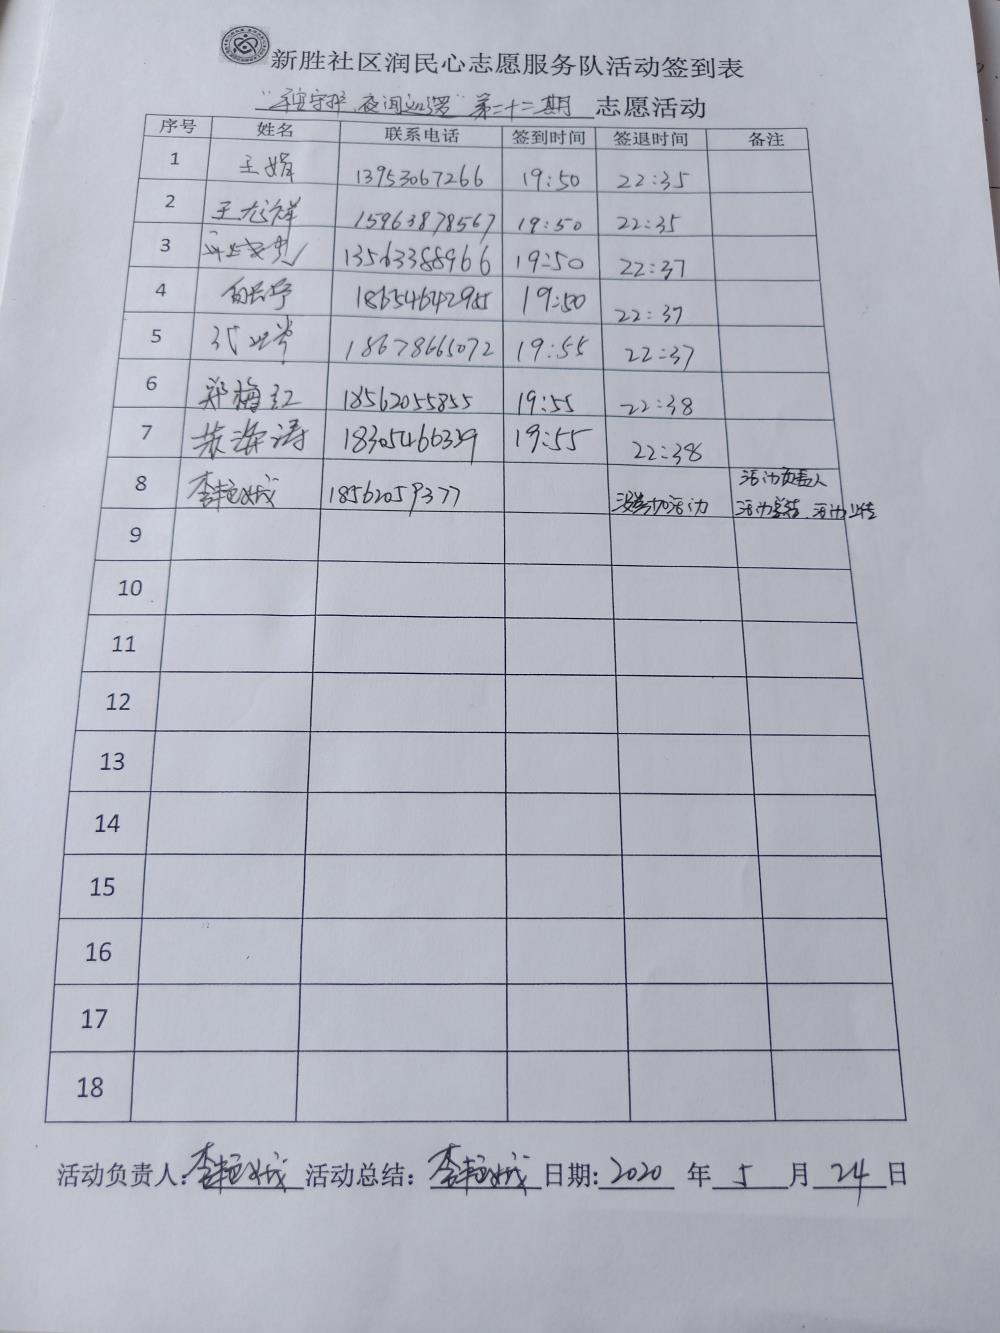 新胜社区润民心志愿服务队活动签到表
夜间巡逻"第二十二期 志愿活动
序号 姓名 联系电话 签到时间 签退时间 备注
1 王娟 13953067266 19:50 22:35
2 王龙祥 15963878567 19:50 22:35
3 13563388966 19:50 22:37
4 18654642955 19:50 22:37
5 18678665072 19:55 22:37
6 郑梅红 18562055855 19:55 22:38
7 海涛 18305466339 19:55 22:38
8 李艳城 18562059377 没参加活动 活动负责人
活动总结、活动上传
9
10
11
12
13
14
15
16
17
18
活动负责人: 李艳城 活动总结: 李艳城 日期: 2020 年 5 月 24 日